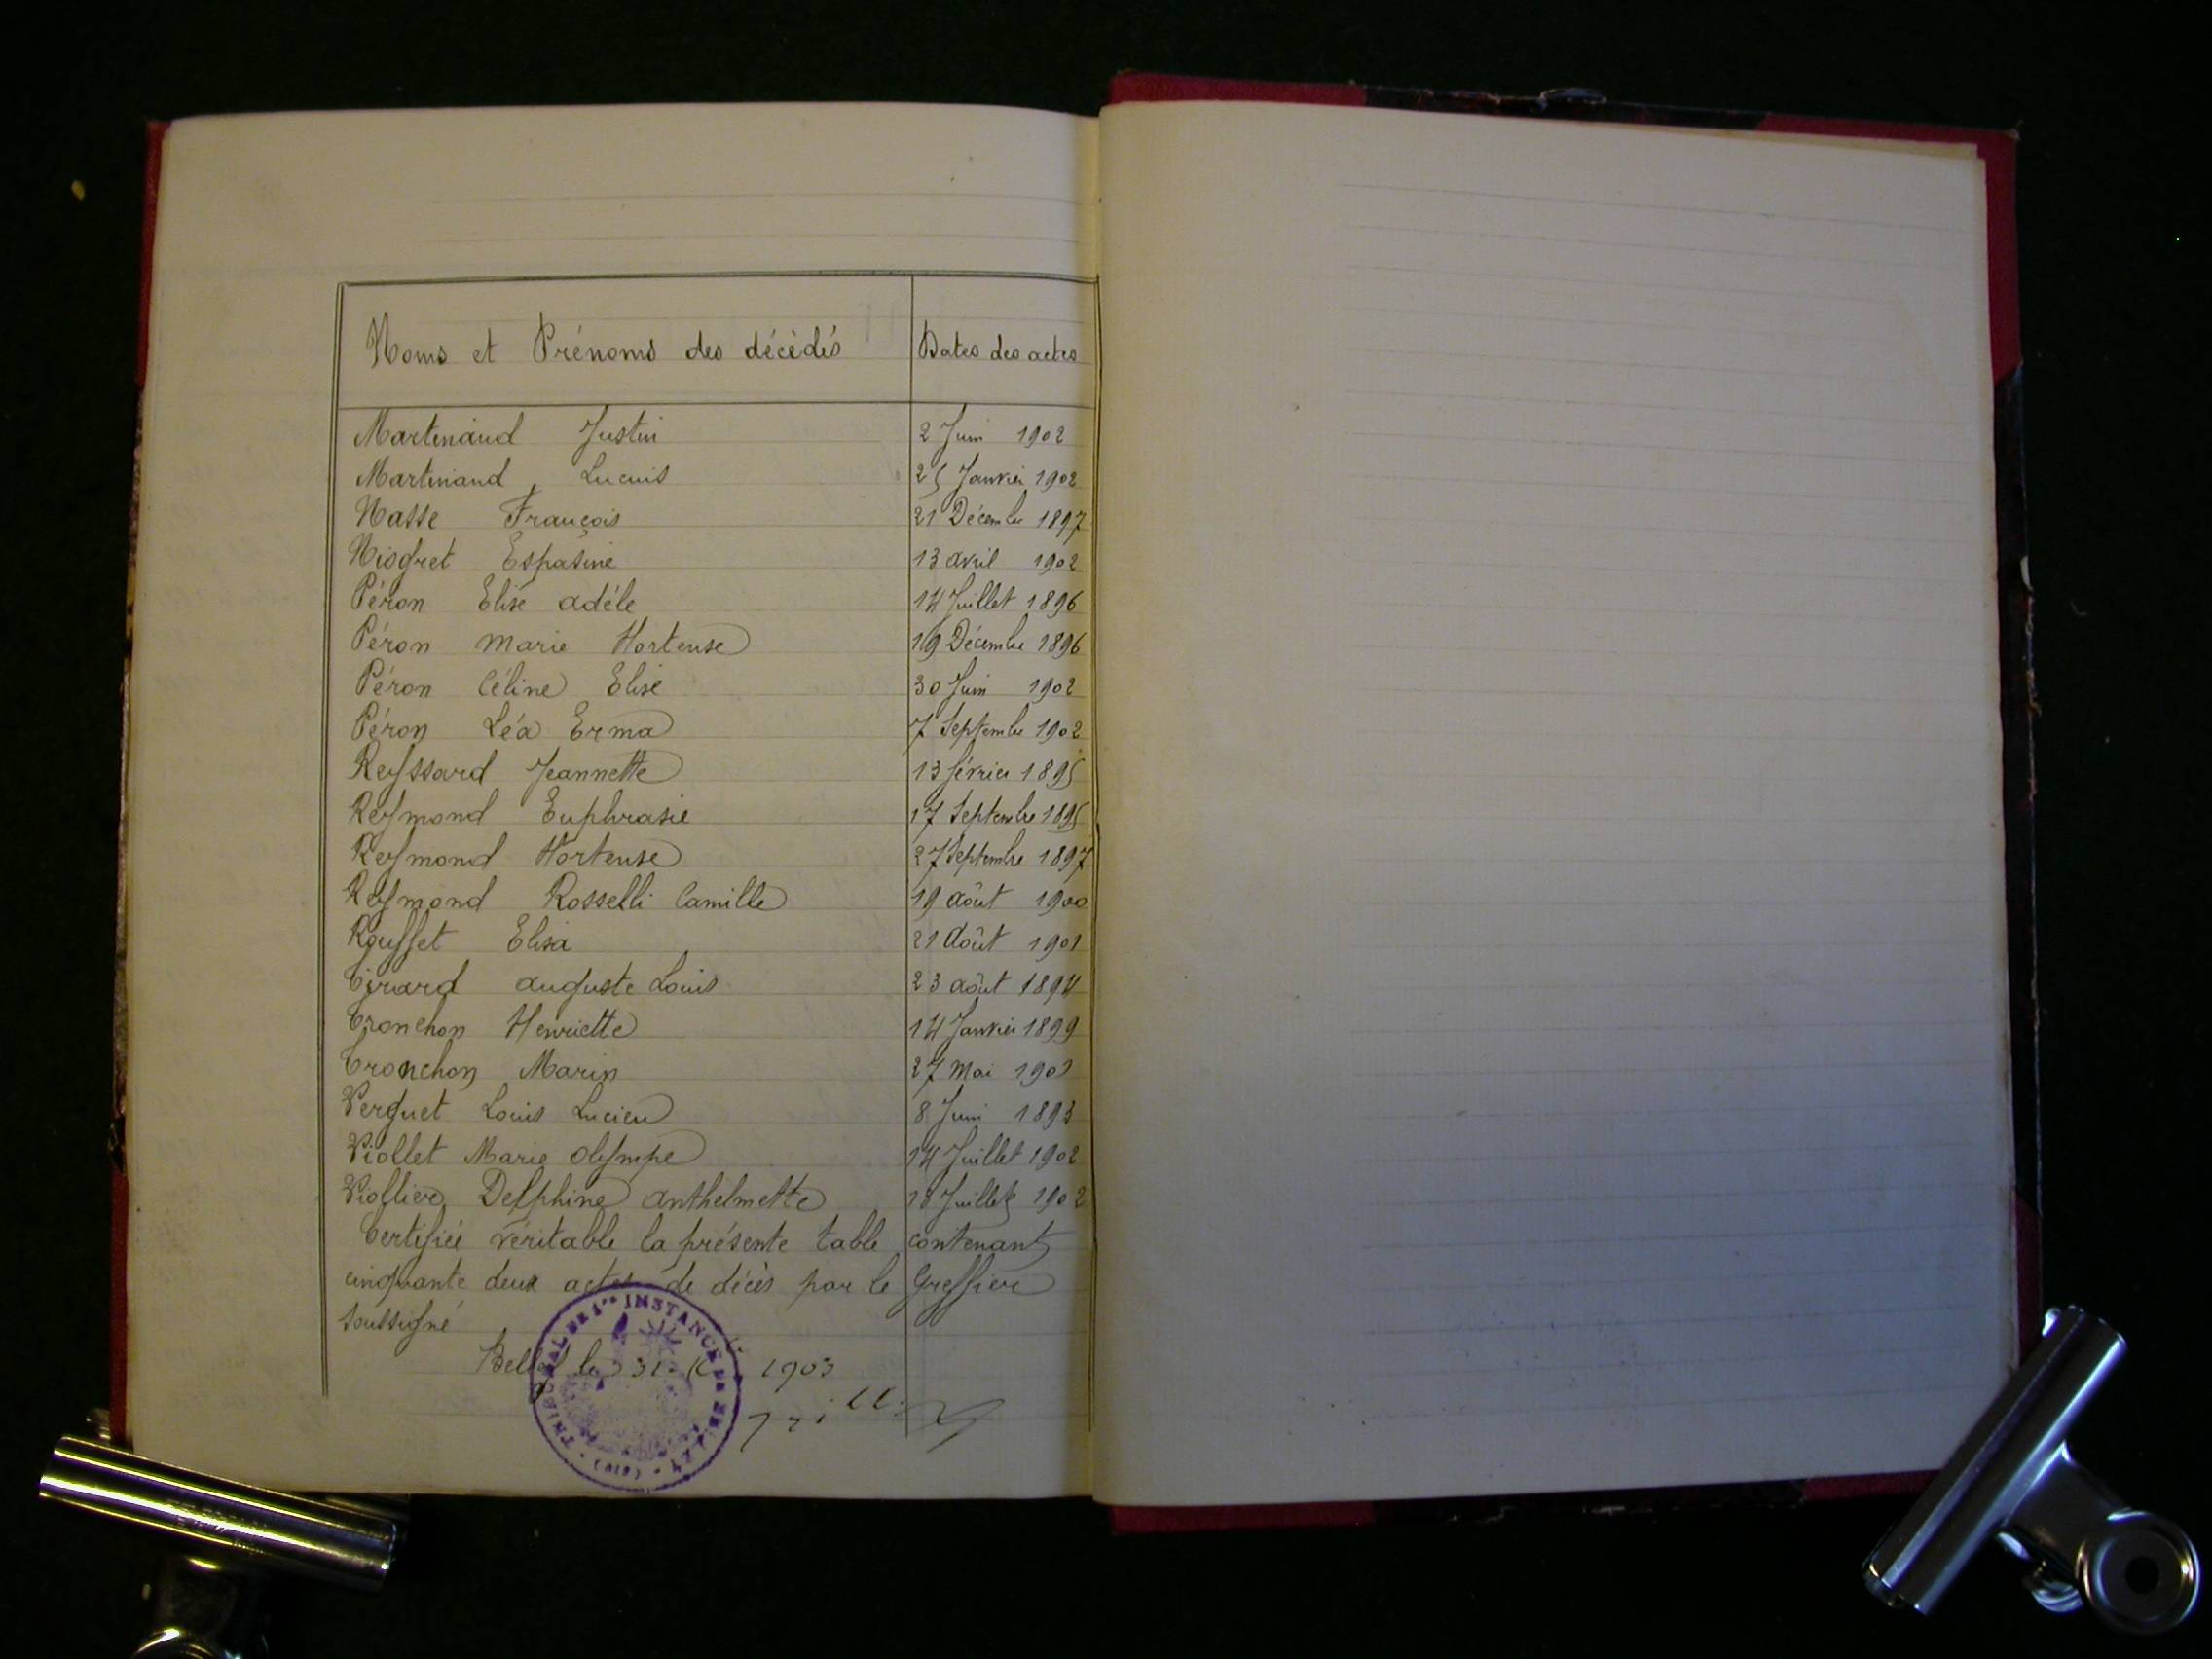 Noms et Prénoms des décédés Dates des actes
Martinand Justin 2 Juin 1902
Martinand Lucius 25 Janvier 1902
Nasse François 21 Décembre 1897
Niogret Espasine 13 avril 1902
Péron Elise adéle 14 Juillet 1896
Péron Marie Hortense 19 Décembre 1896
Péron Céline Elise 30 Juin 1902
Péron Léa Erma 7 Septembre 1902
Reyssard Jeannette 13 février 1895
Reymond Euphrasie 17 Septembre 1895
Reymond Hortense 27 Septembre 1897
Reymond Rosselli Camille 19 août 1900
Rouffet Elisa 21 Août 1901
Tirard auguste Louis 23 août 1894
Tronchon Henriette 14 Janvier 1899
Tronchon Marin 27 Mai 1901
Verguet Louis Lucien 8 Juin 1893
Viollet Marie olympe 14 Juillet 1902
Viollier Delphine anthelmette 13 Juillet 1902
Certifiée véritable la présente table contenant
cinquante deux actes de décès par le Greffier
soussigné
Belley le 31 1903
TRIBUNAL DE 1re INSTANCE DE BELLEY (AIN)